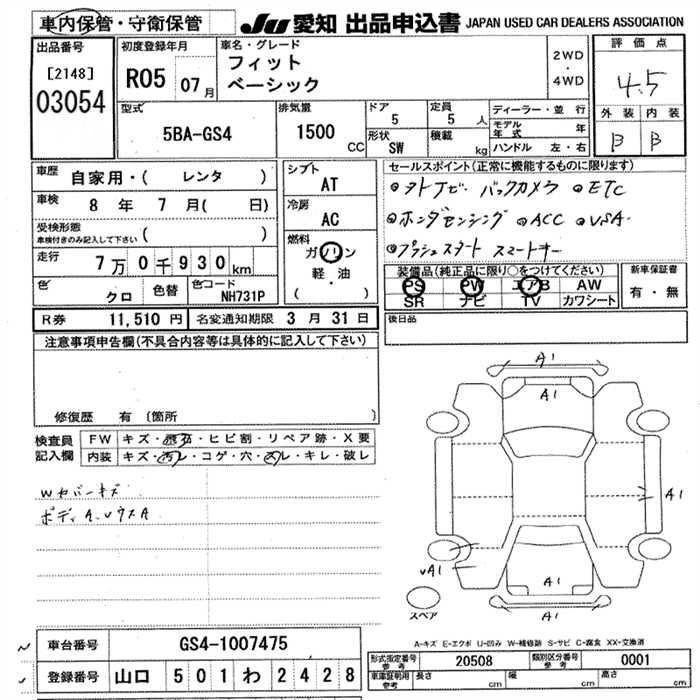 車内保管・守衛保管 JU 愛知 出品申込書 JAPAN USED CAR DEALERS ASSOCIATION
出品番号 [2148] 03054
初度登録年月 R05 07月
車名・グレード フィット ベーシック
2WD・4WD
評価点 4.5
外装 内装
B B
型式 5BA-GS4
排気量 1500 CC
ドア 5
定員 5 人
形状 SW
積載 kg
ディーラー・並行
モデル年式 年
ハンドル 左・右
車歴 自家用・( レンタ )
車検 8年 7月( 日)
受検形態 車検付きのみ記入して下さい ( )
走行 7万0千930km
色 クロ 色替 色コード NH731P
シフト AT
冷房 AC
燃料 ガソリン 軽・油 ( )
セールスポイント(正常に機能するものに限ります)
ストナビ バックカメラ ETC
ホンダセンシング ACC VSA
プッシュスタート スマートキー
装備品(純正品に限り○をつけてください)
PS PW エアB AW
SR ナビ TV カワシート
新車保証書 有・無
R券 11,510円 名変通知期限 3月31日
後日品
注意事項申告欄(不具合内容等は具体的に記入して下さい)
修復歴 有 (箇所 )
検査員記入欄
FW キズ・飛石・ヒビ割・リペア跡・X要
内装 キズ・汚レ・コゲ・穴・スレ・キレ・破レ
Wカバーキズ
ボディA.Uウス A
A1
A1
A1
UA1
A1
A1
スペア
A-キズ E-エクボ U-凹み W-補修跡 S-サビ C-腐食 XX-交換済
車台番号 GS4-1007475
登録番号 山口 501 わ 2428
形式指定番号 参考 20508 類別区分番号 参考 0001
車庫証明用 参考 長さ cm 幅 cm 高さ cm